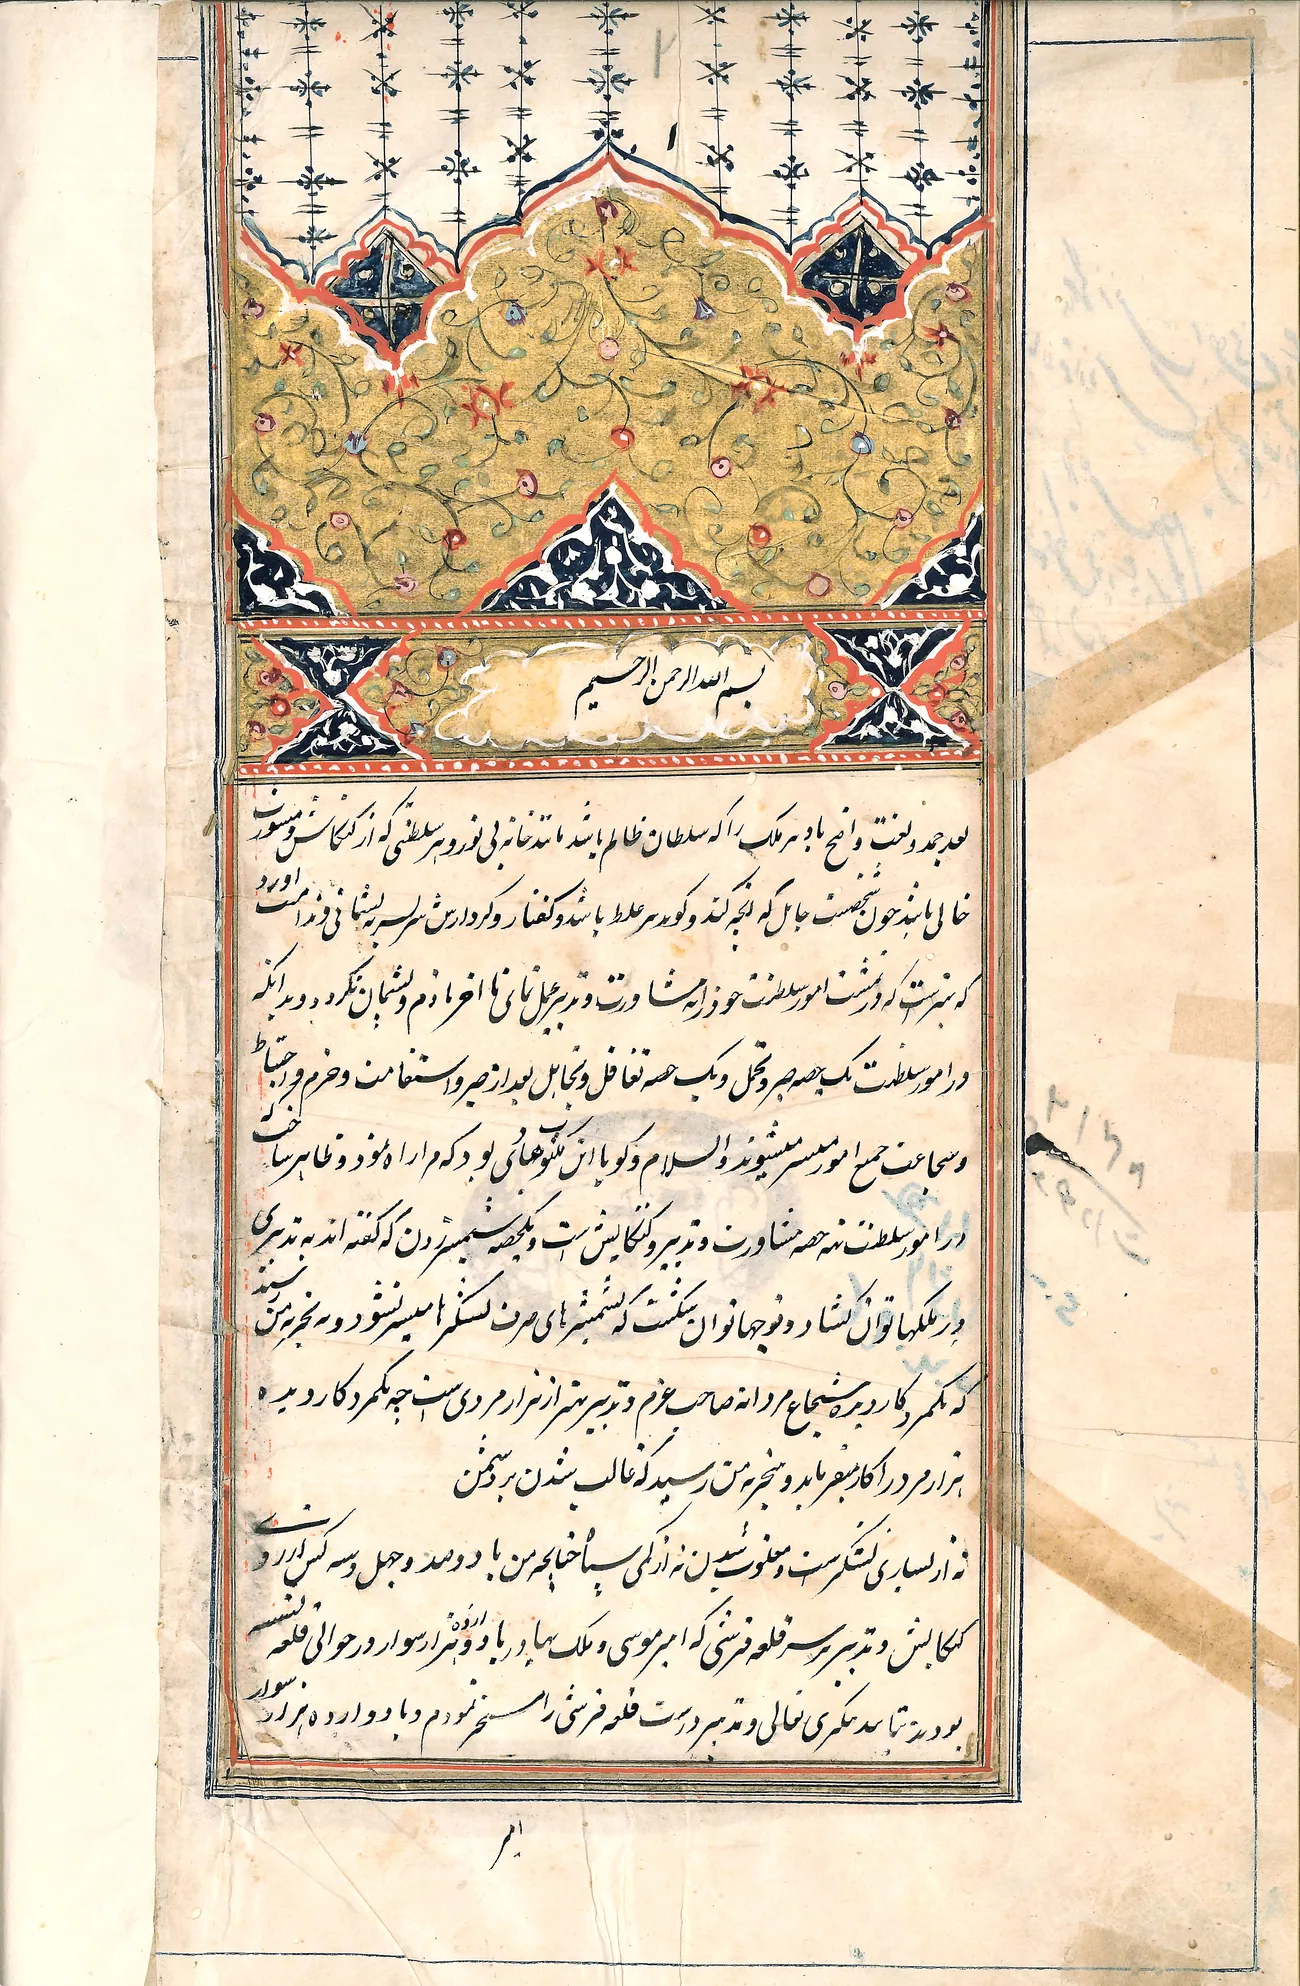 بسم الله الرحمن الرحیم
بعد حمد و نعت واضح باد هر ملک را که سلطان ظالم باشد مانند خانه بی نور و هر سلطنتی که از کنکاش و مشورت
خالی باشد چون شخصیست جاهل که انچه کند و کوید سر غلط باشد و کفتار و کردارش سر بسر به پشیمانی و ندامت اورد
که بهتر است که در مشیت امور سلطنت خود را به مشاورت و تدبیر عمل نمای تا اخر نادم و پشیمان نکردد و بدانکه
در امور سلطنت یک حصه صبر و تحمل و یک حصه تغافل و تجاهل بعد از صبر و استقامت و حزم و احتیاط
و شجاعت جمیع امور میسر میشوند والسلام و کویا این مکتوب هادی بود که مرا راه نمود و ظاهر ساخت که
در امور سلطنت نه حصه مشاورت و تدبیر و کنکایش است و یکحصه شمشیر زدن که کفته اند به تدبیری
در ملکها توان کشاد و فوجها توان شکست که بشمشیرهای صرف لشکرها میسر نشود و به تجربه من رسید
که یکمرد کار دیده شجاع مردانه صاحب عزم و تدبیر بهتر از هزار مردی است چه یکمرد کار دیده
هزار مرد را کار میفرماید و بتجربه من رسید که غالب شدن بر دشمن
نه از بسیاری لشکر است و مغلوب شدن نه از کمی سپاه چنانچه من با دوصد و چهل و سه کس از روی
کنکایش و تدبیر بر سر قلعه قرشی که امیر موسی و ملک بهادر با دوازده هزار سوار در حوالی قلعه نشسته
بودند بتایید تنکری تعالی و تدبیر درست قلعه قرشی را مسخر نمودم و با دوازده هزار سوار
امیر